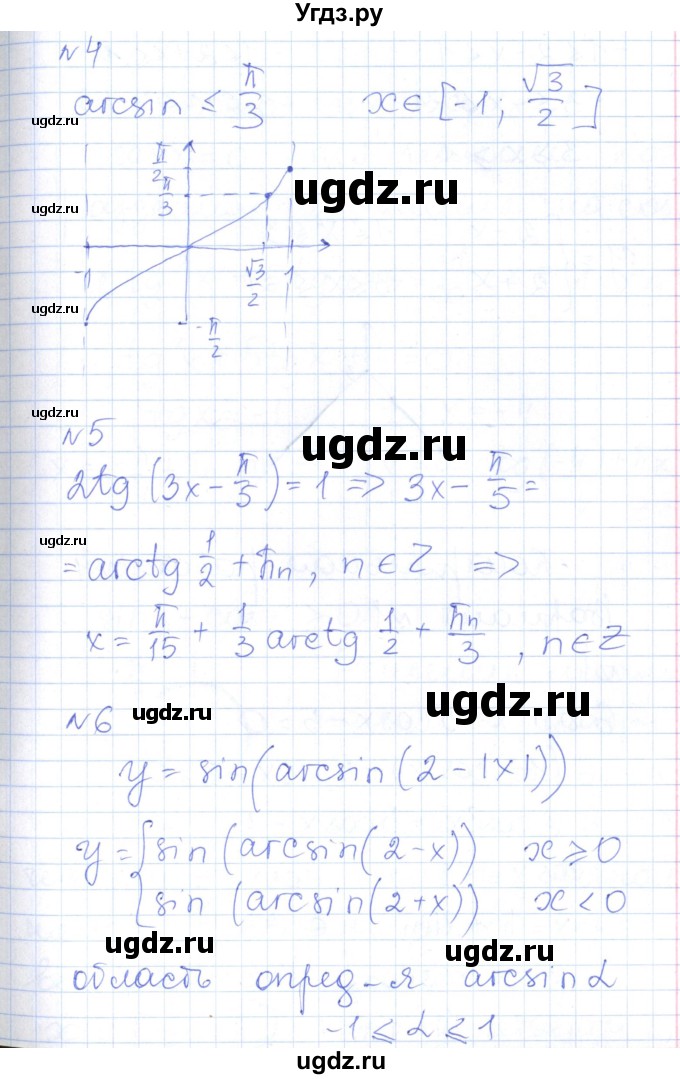 Угдз.ру
N4
arcsin ≤ π/3 x∈[-1; √3/2]
ugdz.ru
π/2
π/3
ugdz.ru
ugdz.ru
-1 √3/2 1
ugdz.ru
-π/2
ugdz.ru
N5
ugdz.ru
2tg(3x-π/5)=1 => 3x-π/5=
ugdz.ru
=arctg 1/2 + πn, n∈Z =>
x=π/15+1/3 arctg 1/2+πn/3, n∈Z
N6 ugdz.ru ugdz.ru
y=sin(arcsin(2-|x|))
y={sin(arcsin(2-x)) x≥0
{sin(arcsin(2+x)) x<0
ugdz.ru ugdz.ru
область опред-я arcsin α
-1≤α≤1
ugdz.ru